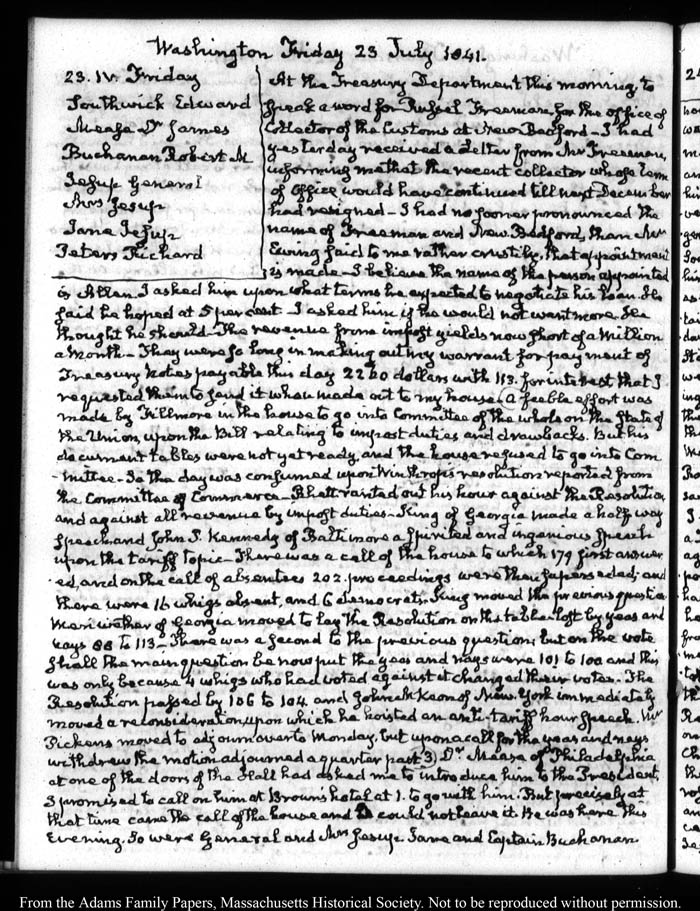 Washington Friday 23 July 1841.
23. IV. Friday
Southwick Edward
Mease Dr James
Buchanan Robert M
Jesup General
Mrs Jesup
Jane Jesup
Peters Richard
At the Treasury Department this morning, to
speak a word for Russel Freeman for the office of
Collector of the Customs at New Bedford – I had
yesterday received a letter from Mr Freeman,
informing me that the recent collector whose term
of Office would have continued till next December
had resigned – I had no sooner pronounced the
name of Freeman and New Bedford, than Mr
Ewing said to me rather crustily, that appointment
is made – I believe the name of the person appointed
is Allen. I asked him upon what terms he expected to negotiate his loan. He
said he hoped at 5 per cent – I asked him if he would not want more. He
thought he should – The revenue from impost yields now short of a Million
a Month – They were so long in making out my warrant for payment of
Treasury Notes payable this day 2260 dollars with 113. for interest that I
requested them to send it when made out to my house. (A feeble effort was
made by Fillmore in the house to go into Committee of the whole on the State of
the Union, upon the Bill relating to impost duties and drawbacks. But his
document tables were not yet ready, and the house refused to go into Com
-mittee – So the day was consumed upon Winthrop's resolution reported from
the Committee of Commerce – Rhett ranted out his hour against the Resolution,
and against all revenue by impost duties – King of Georgia made a half way
speech and John P. Kennedy of Baltimore a spirited and ingenious Speech
upon the tariff topic – There was a call of the house to which 179 first answer
-ed, and on the call of absentees 202. proceedings were then superseded; and
there were 16 whigs absent, and 6 democrats. King moved the previous question
Meriwether of Georgia moved to lay the Resolution on the table. lost by yeas and
nays 88 to 113 – There was a second to the previous question; but on the vote
shall the main question be now put the yeas and nays were 101 to 100 and this
was only because 4 whigs who had voted against it changed their votes. The
Resolution passed by 106 to 104 and John McKeon of New York immediately
moved a reconsideration, upon which he hoisted an anti-tariff hour speech. Mr
Pickens moved to adjourn over to Monday, but upon a call for the yeas and nays
withdrew the motion adjourned a quarter past 3) Dr Mease of Philadelphia
at one of the doors of the Hall had asked me to introduce him to the President,
I promised to call on him at Brown's hotel at 1. to go with him. But precisely at
that time came the call of the house and I could not leave it. He was here this
Evening. So were General and Mrs Jesup Jane and Captain Buchanan.
From the Adams Family Papers, Massachusetts Historical Society. Not to be reproduced without permission.